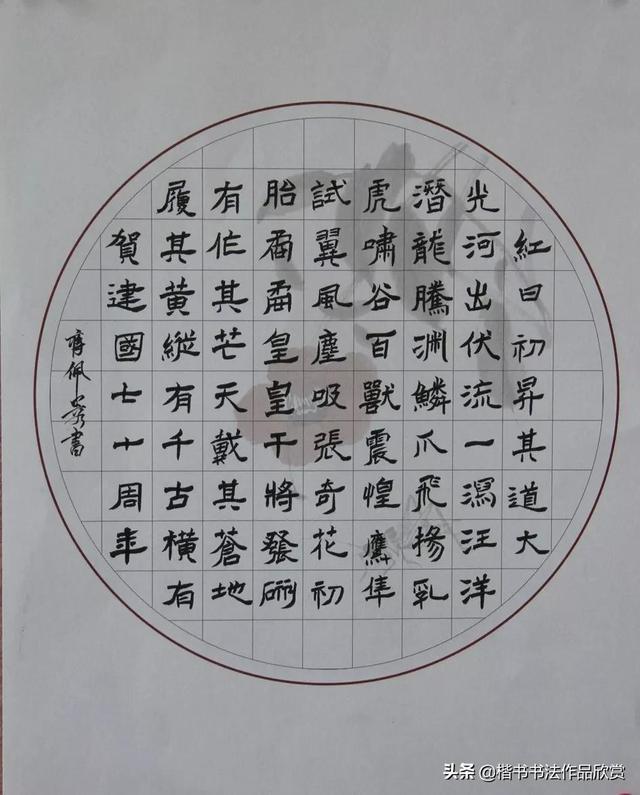 紅日初昇其道大
光河出伏流一瀉汪洋
潛龍騰淵鱗爪飛揚乳
虎嘯谷百獸震惶鷹隼
試翼風塵吸張奇花初
胎矞矞皇皇干將發硎
有作其芒天戴其蒼地
履其黃縱有千古橫有
賀建國七十周年
佩書
头条 @楷书书法作品欣赏